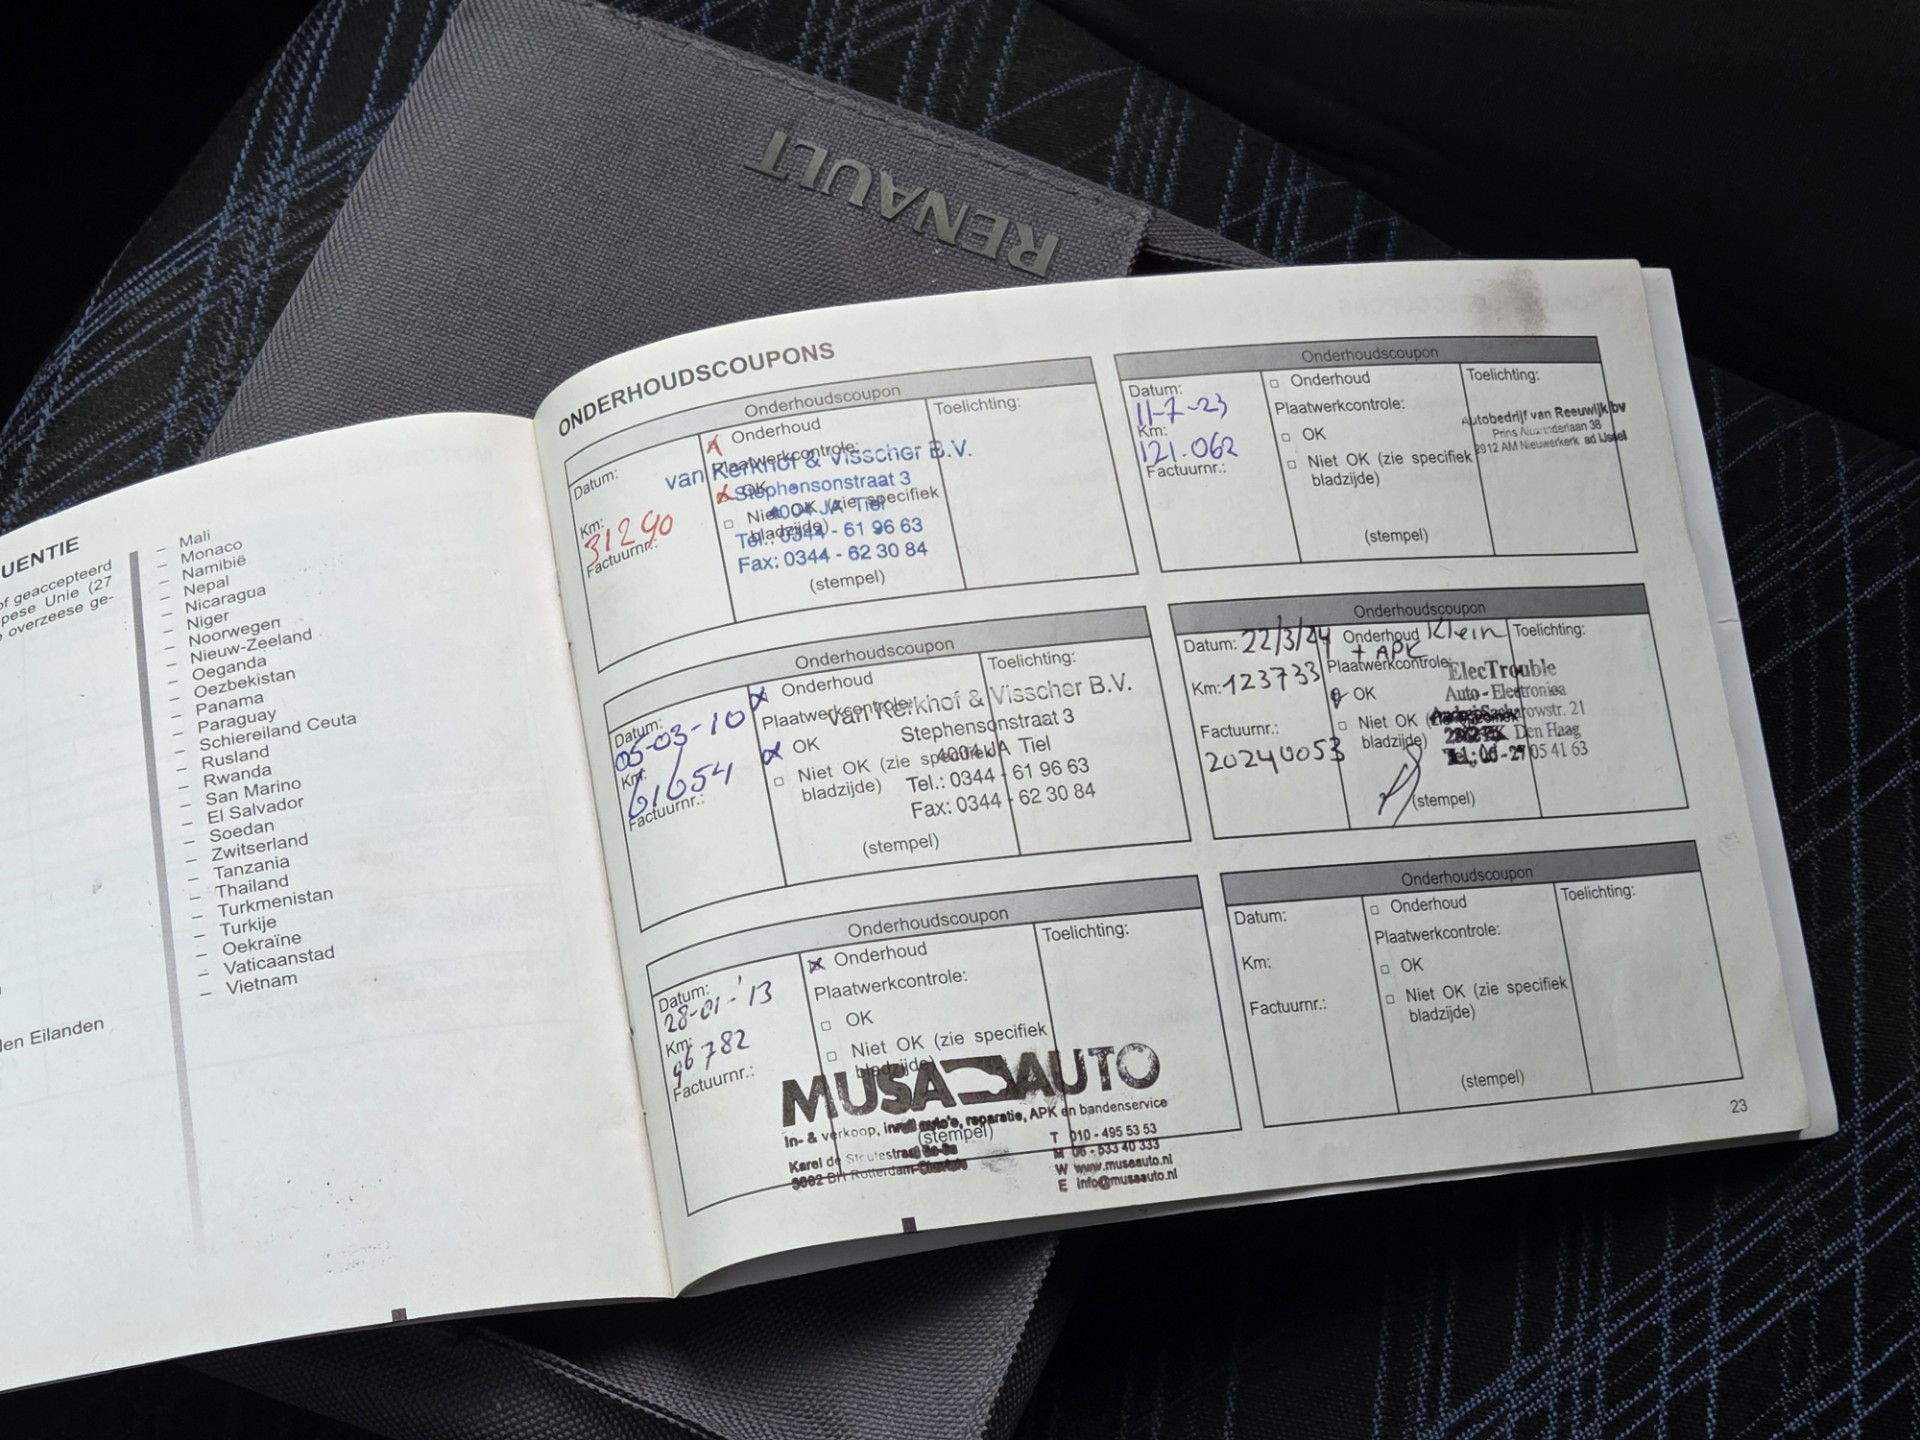 RENAULT
UENTIE
of geaccepteerd
pese Unie (27
overzeese ge-
len Eilanden
– Mali
– Monaco
– Namibië
– Nepal
– Nicaragua
– Niger
– Noorwegen
– Nieuw-Zeeland
– Oeganda
– Oezbekistan
– Panama
– Paraguay
– Schiereiland Ceuta
– Rusland
– Rwanda
– San Marino
– El Salvador
– Soedan
– Zwitserland
– Tanzania
– Thailand
– Turkmenistan
– Turkije
– Oekraïne
– Vaticaanstad
– Vietnam
ONDERHOUDSCOUPONS
Onderhoudscoupon
Datum:
Km:
31290
Factuurnr.:
Onderhoud
Plaatwerkcontrole:
OK
Niet OK (zie specifiek
bladzijde)
(stempel)
Toelichting:
van Kerkhof & Visscher B.V.
Stephensonstraat 3
4004 JA Tiel
Tel.: 0344 - 61 96 63
Fax: 0344 - 62 30 84
Onderhoudscoupon
Datum:
05-03-10
Km:
61654
Factuurnr.:
Onderhoud
Plaatwerkcontrole:
OK
Niet OK (zie specifiek
bladzijde)
(stempel)
Toelichting:
van Kerkhof & Visscher B.V.
Stephensonstraat 3
4004 JA Tiel
Tel.: 0344 - 61 96 63
Fax: 0344 - 62 30 84
Onderhoudscoupon
Datum:
28-01-'13
Km:
96782
Factuurnr.:
Onderhoud
Plaatwerkcontrole:
OK
Niet OK (zie specifiek
bladzijde)
(stempel)
Toelichting:
MUSA AUTO
In- & verkoop, inruil auto's, reparatie, APK en bandenservice
Karel de Stoutestraat
3082 BH Rotterdam-Charlois
T 010 - 495 53 53
M 06 - 533 40 333
W www.musaauto.nl
E info@musaauto.nl
Onderhoudscoupon
Datum:
11-7-23
Km:
121.062
Factuurnr.:
Onderhoud
Plaatwerkcontrole:
OK
Niet OK (zie specifiek
bladzijde)
(stempel)
Toelichting:
Autobedrijf van Reeuwijk bv
Prins Alexanderlaan 38
2912 AM Nieuwerkerk ad IJssel
Onderhoudscoupon
Datum: 22/3/24
Km: 123733
Factuurnr.:
20240053
Onderhoud Klein
+ APK
Plaatwerkcontrole:
OK
Niet OK
bladzijde)
(stempel)
Toelichting:
ElecTrouble
Auto - Electronica
Andrej Sacharowstr. 21
Den Haag
05 41 63
Onderhoudscoupon
Datum:
Km:
Factuurnr.:
Onderhoud
Plaatwerkcontrole:
OK
Niet OK (zie specifiek
bladzijde)
(stempel)
Toelichting:
23